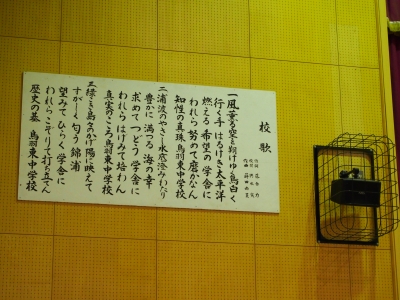 校歌
一 風薫る空を翔けゆく鳥白く
行く手 はるけき太平洋
燃える 希望の学舎に
われら 努めて磨かなん
知性の真珠 鳥羽東中学校
二 浦波のやさしく水底澄みわたり
豊かに 満つる 海の幸
求めて つどう 学舎に
われら はげみて 培わん
真実のこころ 鳥羽東中学校
三 緑こき島々のかげ 陽に映えて
すがしく 匂う 錦浦
望みて ひらく 学舎に
われら こぞりて 打ち立てん
歴史の基 鳥羽東中学校